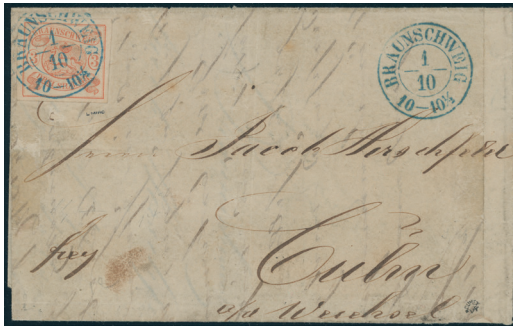 BRAUNSCHWEIG
1
10
10-10¾
3
3
BRAUNSCHWEIG
1
10
10-10¾
Herrn Jacob Hirschfeld
frey
Culm
a/d Weichsel